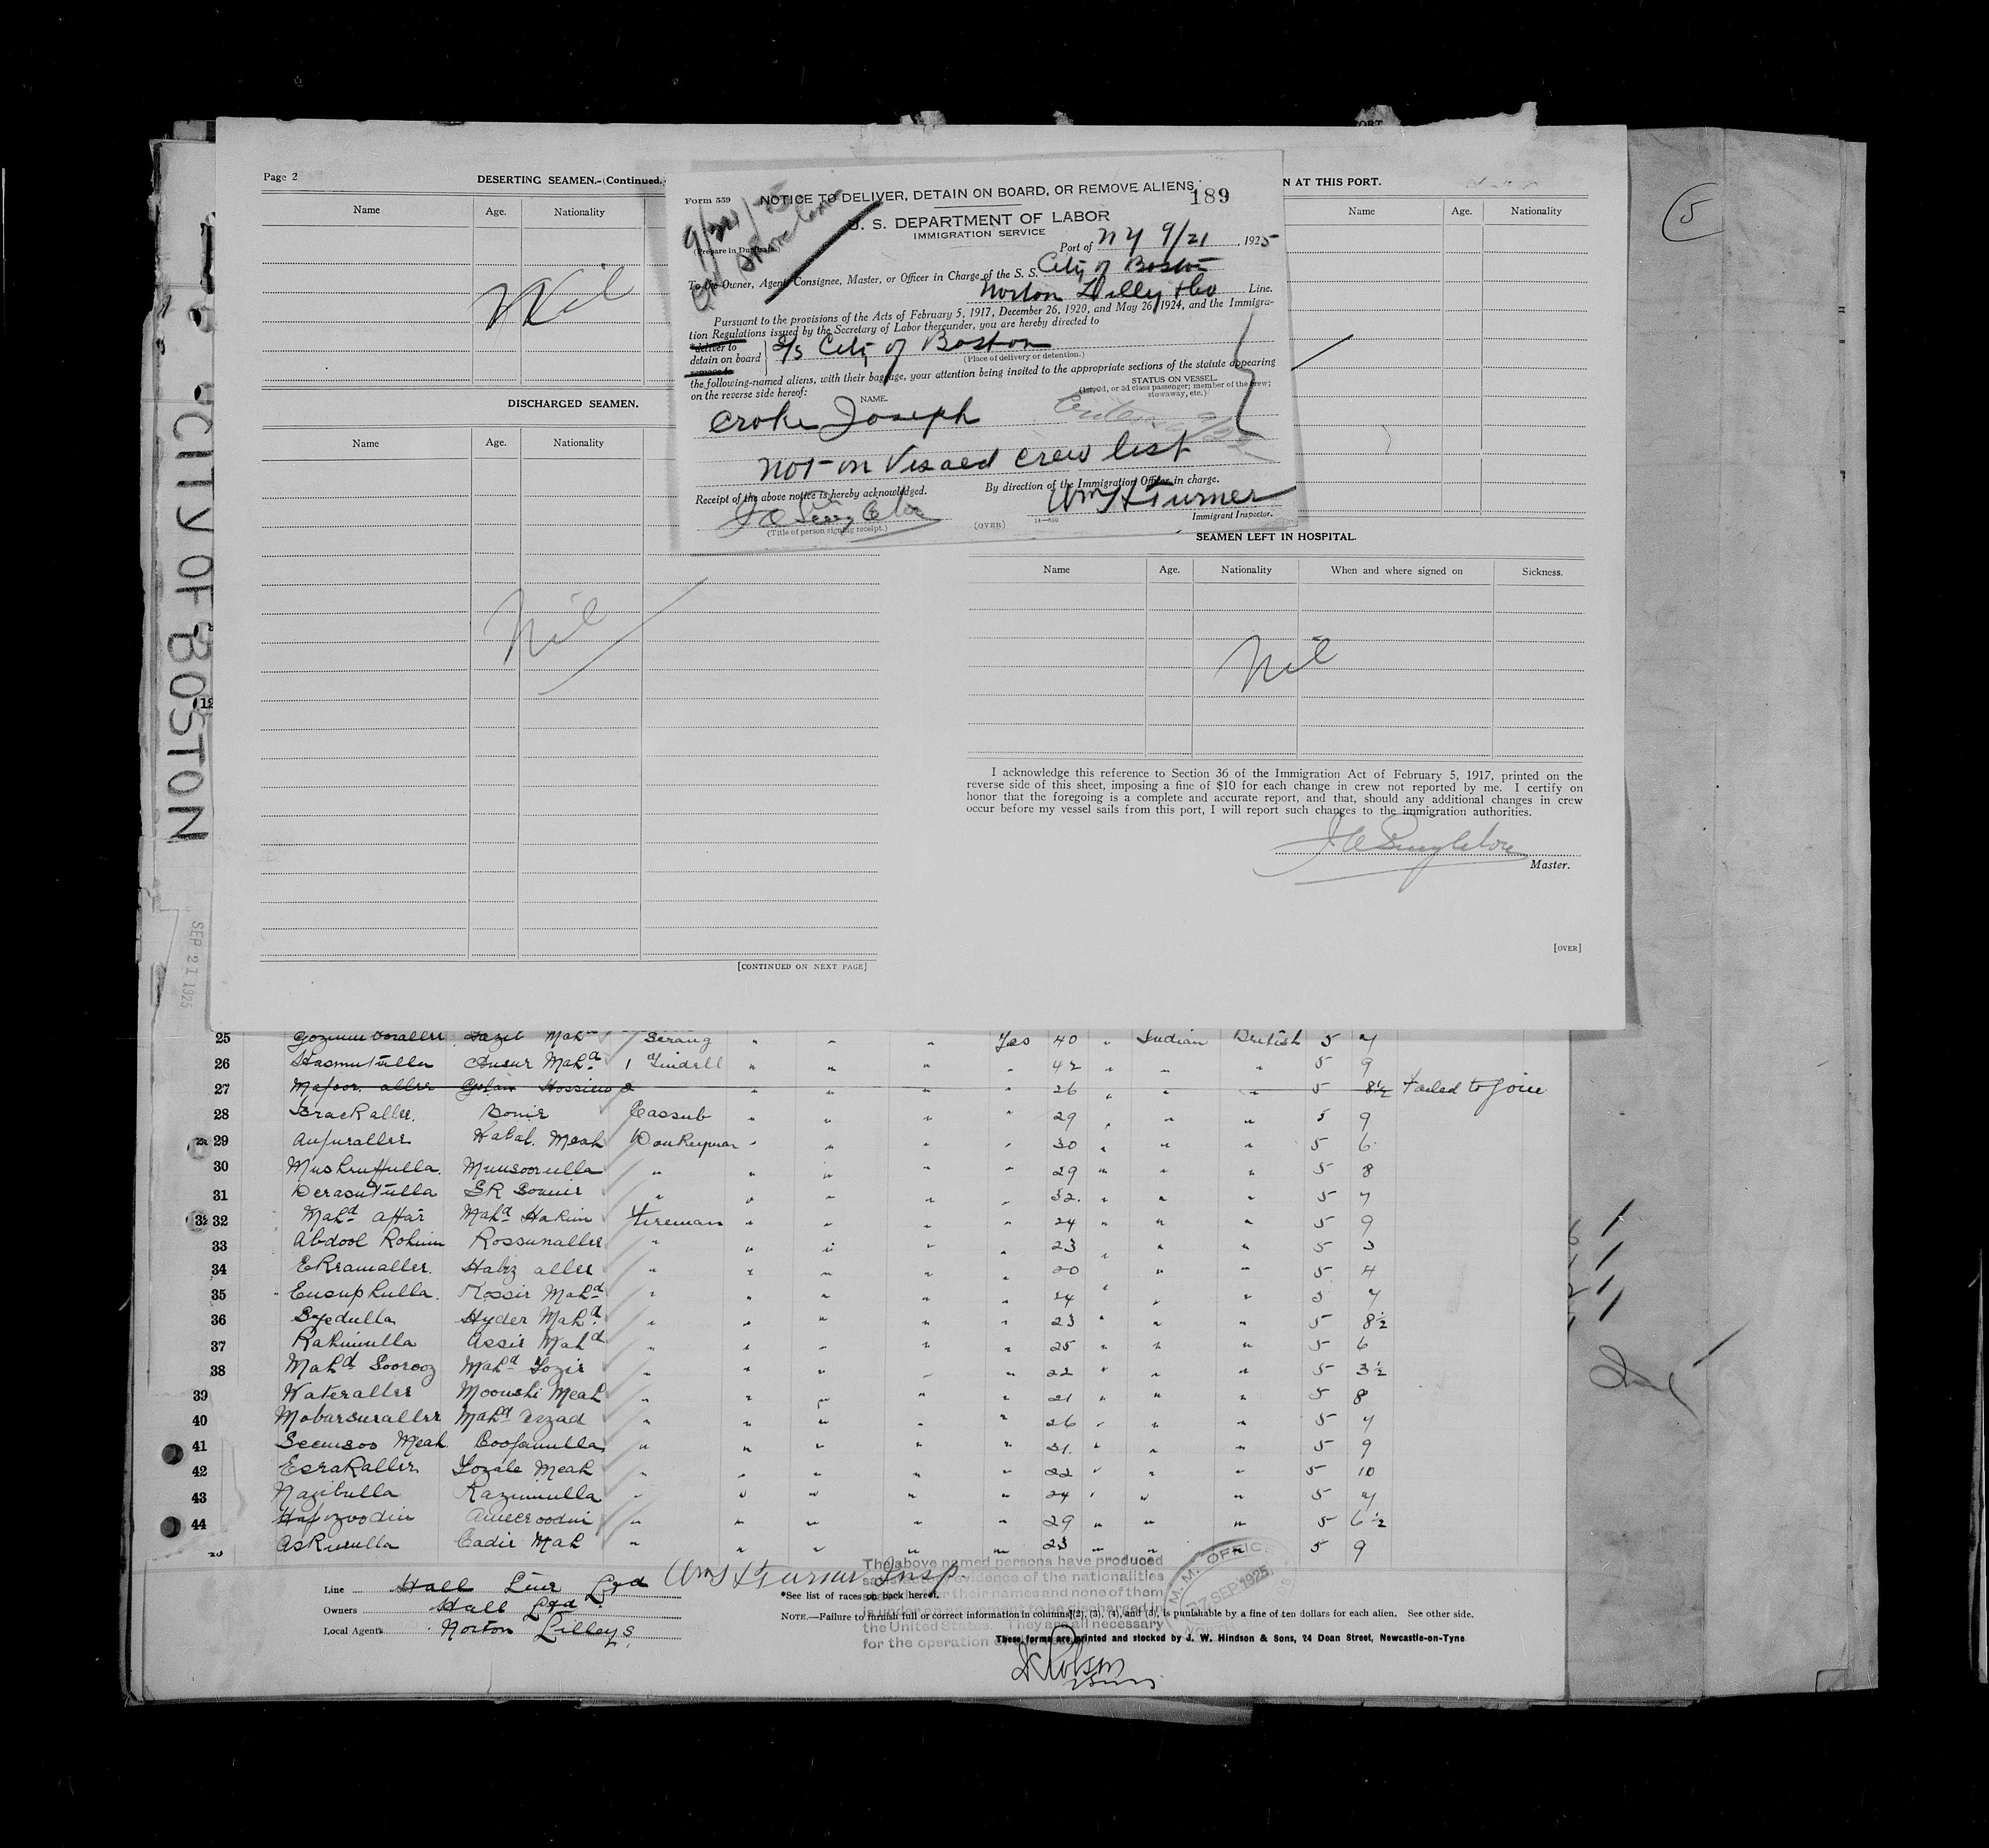 Page 2
DESERTING SEAMEN.-(Continued.
Name Age. Nationality
Nil
DISCHARGED SEAMEN.
Name Age. Nationality
Nil
[CONTINUED ON NEXT PAGE]
Form 559 NOTICE TO DELIVER, DETAIN ON BOARD, OR REMOVE ALIENS
189
U. S. DEPARTMENT OF LABOR
IMMIGRATION SERVICE
(Prepare in Duplicate)
Port of NY 9/21, 1925
To the Owner, Agent, Consignee, Master, or Officer in Charge of the S. S. City of Boston
Norton Lilly & Co Line.
Pursuant to the provisions of the Acts of February 5, 1917, December 26, 1920, and May 26, 1924, and the Immigra-
tion Regulations issued by the Secretary of Labor thereunder, you are hereby directed to
deliver to
detain on board S/S City of Boston
remove
(Place of delivery or detention.)
the following-named aliens, with their baggage, your attention being invited to the appropriate sections of the statute appearing
on the reverse side hereof:
NAME. STATUS ON VESSEL.
(1st, 2d, or 3d class passenger; member of the crew;
stowaway, etc.)
Croke Joseph
not on Visaed crew list
Receipt of the above notice is hereby acknowledged. By direction of the Immigration Officer in charge.
J A Singleton Wm H Turner
(Title of person signing receipt.) (OVER) Immigrant Inspector.
N AT THIS PORT.
Name Age. Nationality
SEAMEN LEFT IN HOSPITAL.
Name Age. Nationality When and where signed on Sickness.
Nil
I acknowledge this reference to Section 36 of the Immigration Act of February 5, 1917, printed on the
reverse side of this sheet, imposing a fine of $10 for each change in crew not reported by me. I certify on
honor that the foregoing is a complete and accurate report, and that, should any additional changes in crew
occur before my vessel sails from this port, I will report such changes to the immigration authorities.
J A Singleton
Master.
[OVER]
5
CITY OF BOSTON
SEP 21 1925
25 Mahd Serang " " " Yes 40 " Indian British 5 7
26 Hasmutulla Ansur Mahd 1 Tindell " " " " 42 " " " 5 9
27 Mafoor aller Golam Hossien 2 " " " " 26 " " " 5 8½ Failed to join
28 Israckaller. Bonir Cassub " " " " 29 " " " 5 9
29 Anfuraller Habal. Meah Donkeyman " " " " 30 " " " 5 6
30 Mushruffulla. Munsoorulla " " " " " 29 " " " 5 8
31 Derasutulla SR Somir " " " " " 32. " " " 5 7
32 Mahd Affar Mahd Hakim Fireman " " " " 24 " " " 5 9
33 Abdool Rohim Rossunaller " " " " " 23 " " " 5 3
34 Ekramaller. Habz aller " " " " " 20 " " 5 4
35 Eusuphulla. Kossir Mahd " " " " " 24 " " " 5 7
36 Syedulla Hyder Mahd " " " " " 23 " " " 5 8½
37 Rahimulla Assir Mahd " " " " " 25 " " " 5 6
38 Mahd Soorooz Mahd Tozir " " " " " 22 " " " 5 3½
39 Wateraller Moonshi Meah " " " " " 21 " " " 5 8
40 Mobarsuraller Mahd Azzad " " " " " 26 " " " 5 7
41 Seemsoo Meah Boofamulla " " " " " 31. " " " 5 9
42 Esrakaller Tozale Meah " " " " " 22 " " " 5 10
43 Nazibulla Kazimulla " " " " " 24 " " " 5 7
44 Hafizoodin Ameeroodin " " " " " 29 " " " 5 6½
Cadir Mah " " " " " 23 " " " 5 9
Line Hall Line Ltd
Owners Hall Ltd.
Local Agents Norton Lilleys.
Wm H Turner Insp.
The above named persons have produced
satisfactory evidence of the nationalities
their names and none of them
is under agreement to be discharged in
the United States. They are all necessary
for the operation
*See list of races on back hereof.
NOTE.—Failure to furnish full or correct information in columns (2), (3), (4), and (5), is punishable by a fine of ten dollars for each alien. See other side.
These forms are printed and stocked by J. W. Hindson & Sons, 24 Dean Street, Newcastle-on-Tyne
M. M. OFFICE
7 SEP 1925